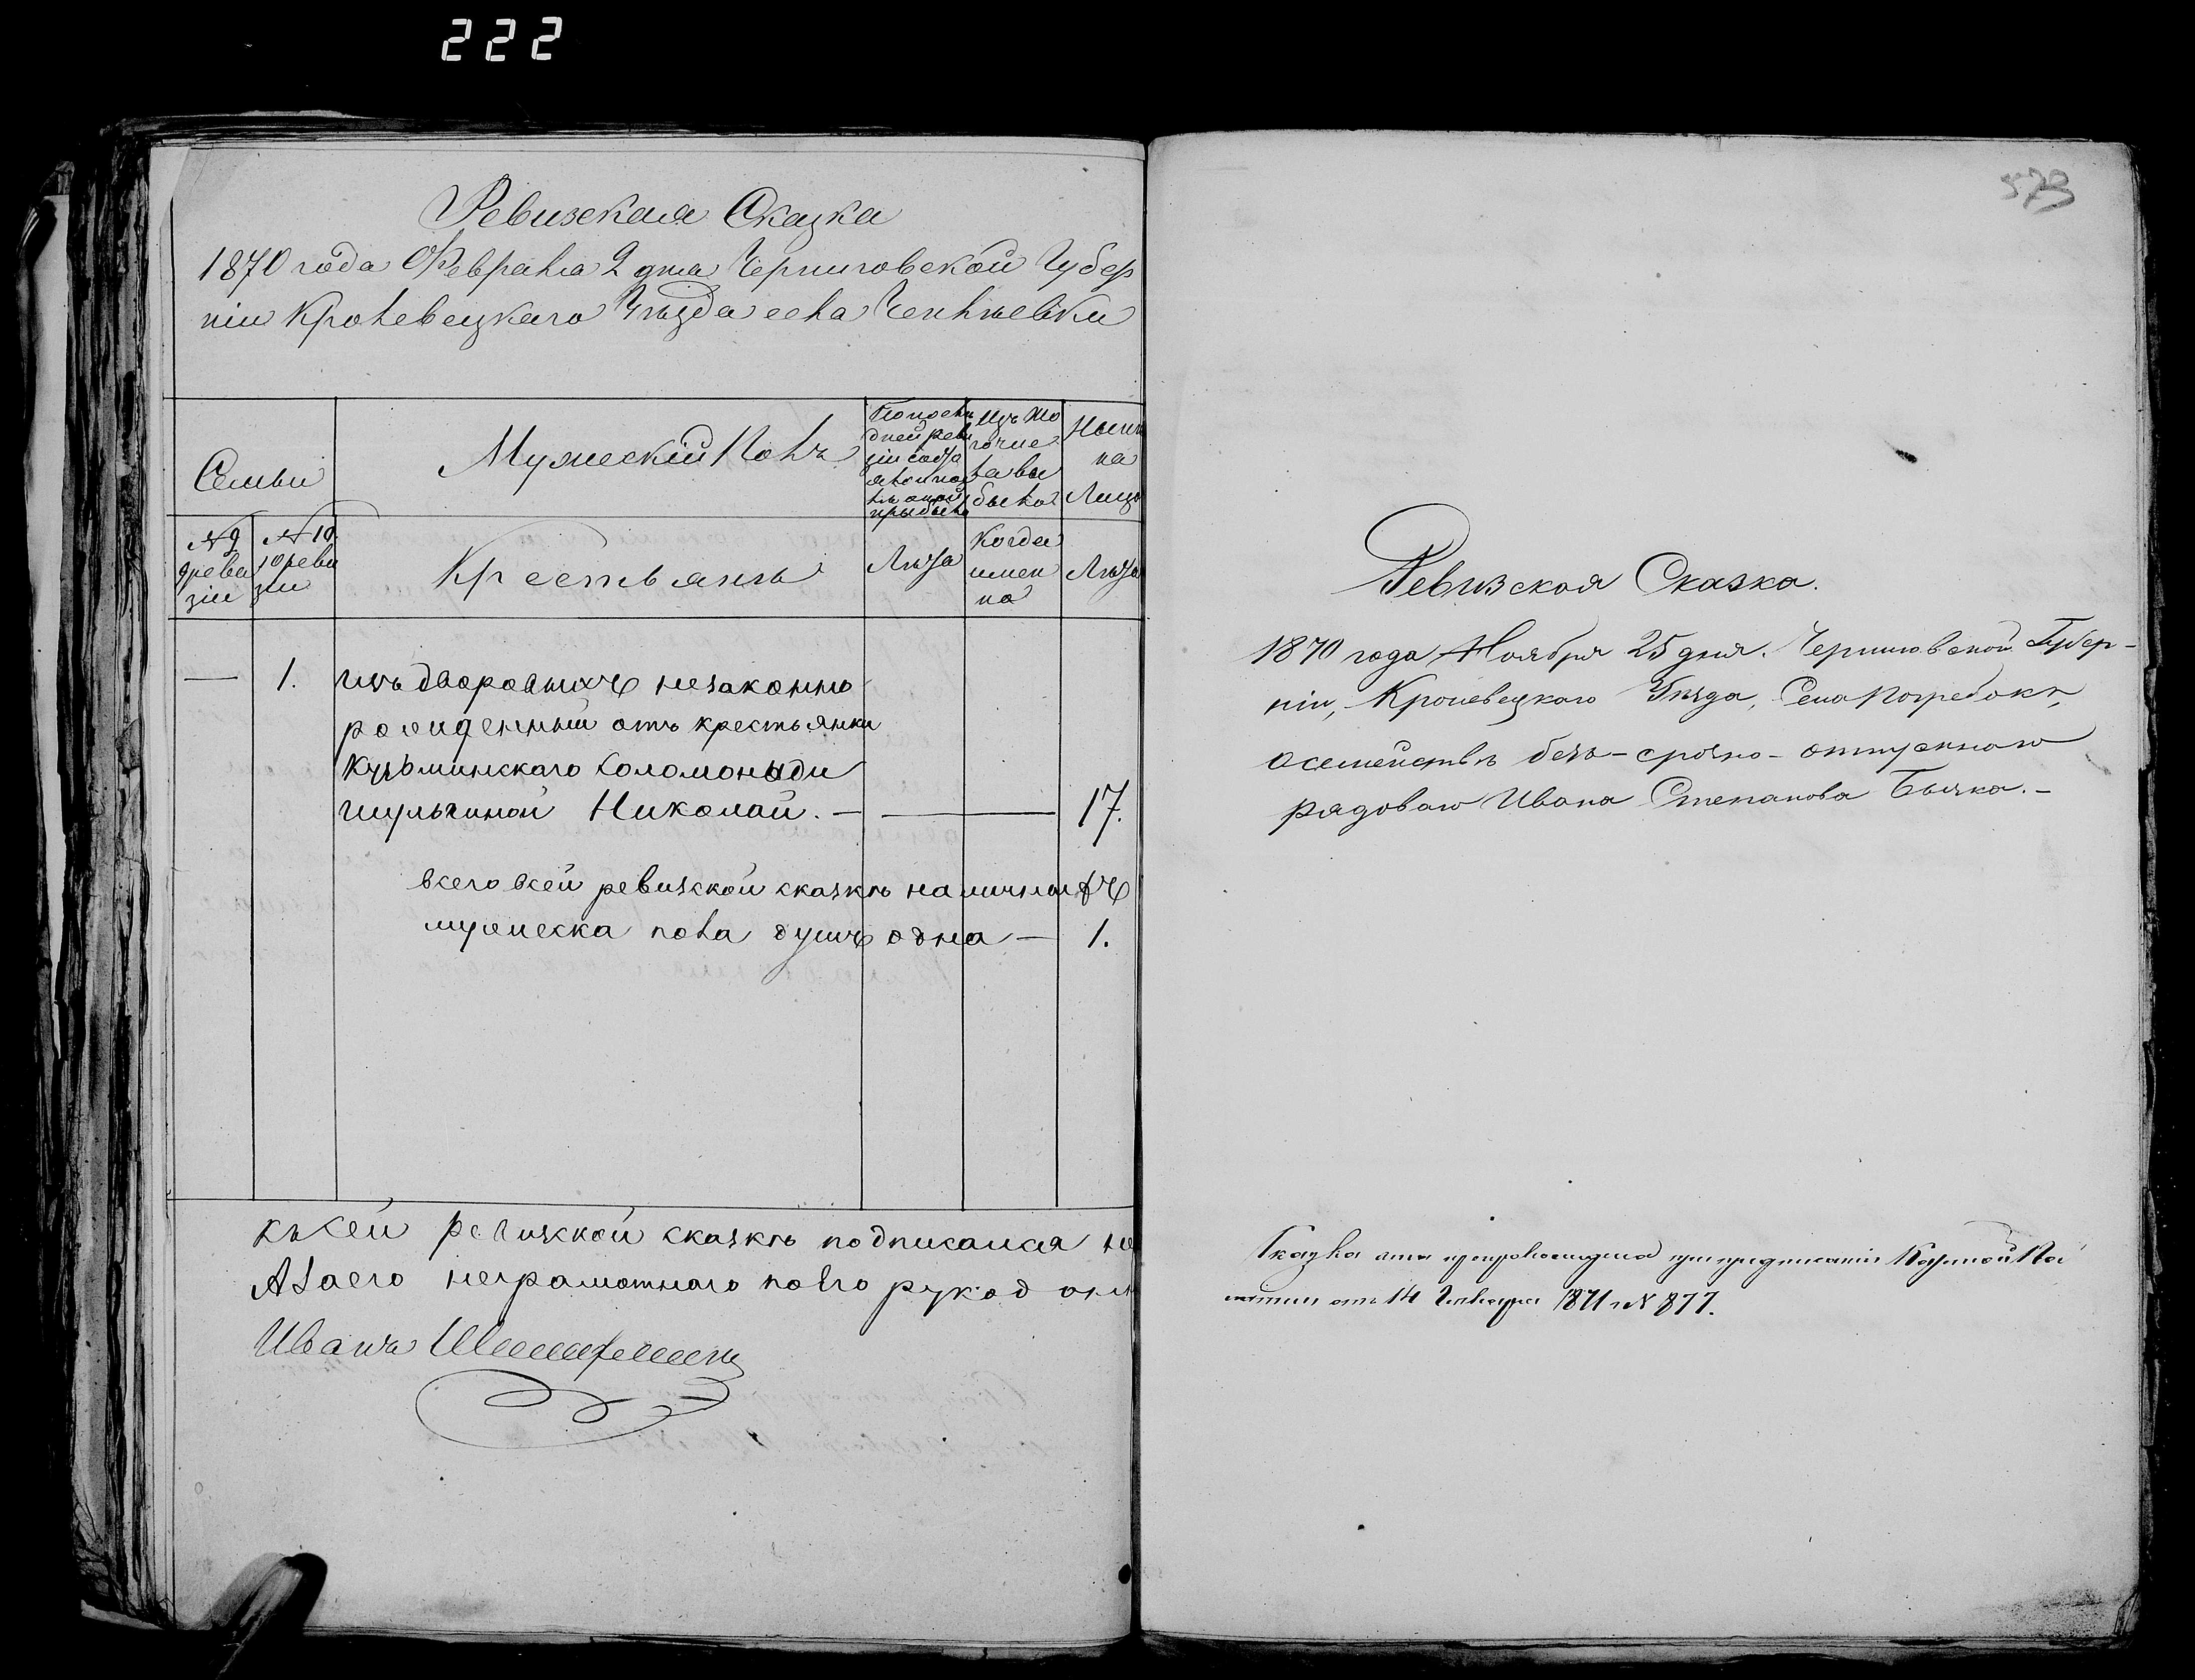 222
Ревизская Сказка
1870 года Февраля 2 дня Черниговской Губер
ніи Кролевецкаго Уѣзда села Чепліевки
Семьи
Мужескій Полъ
По послѣ
дней реви
зіи состо
яло и пос
лѣ оной
прибыло
Изъ То
го чис
ла вы
было
Нынѣ
на
Лицо
№ 9
9 реви
зіи
№ 10
10 реви
зіи
Крестьянъ
Лѣта
Когда
имен
но
Лѣта
— 1. изъ дворовыхъ незаконно
рожденный отъ крестьянки
Кузьминскаго Соломониди
Шульгиной Николай. — — 17.
всего всей ревизской сказкѣ наличныхъ
мужеска пола душъ одна — 1.
къ сей ревизской сказкѣ подписался не
А за его неграмотнаго по его рукод
Иванъ
573
Ревизская Сказка.
1870 года Ноября 25 дня. Черниговской Губер-
ніи, Кролевецкаго Уѣзда, Села Погребокъ,
о семействѣ безъ-срочно-отпускнаго
рядоваго Ивана Степанова Бычка. —
Сказка эта препровождена при предписаніи Казенной Па
латы отъ 14 Января 1871 г № 877.